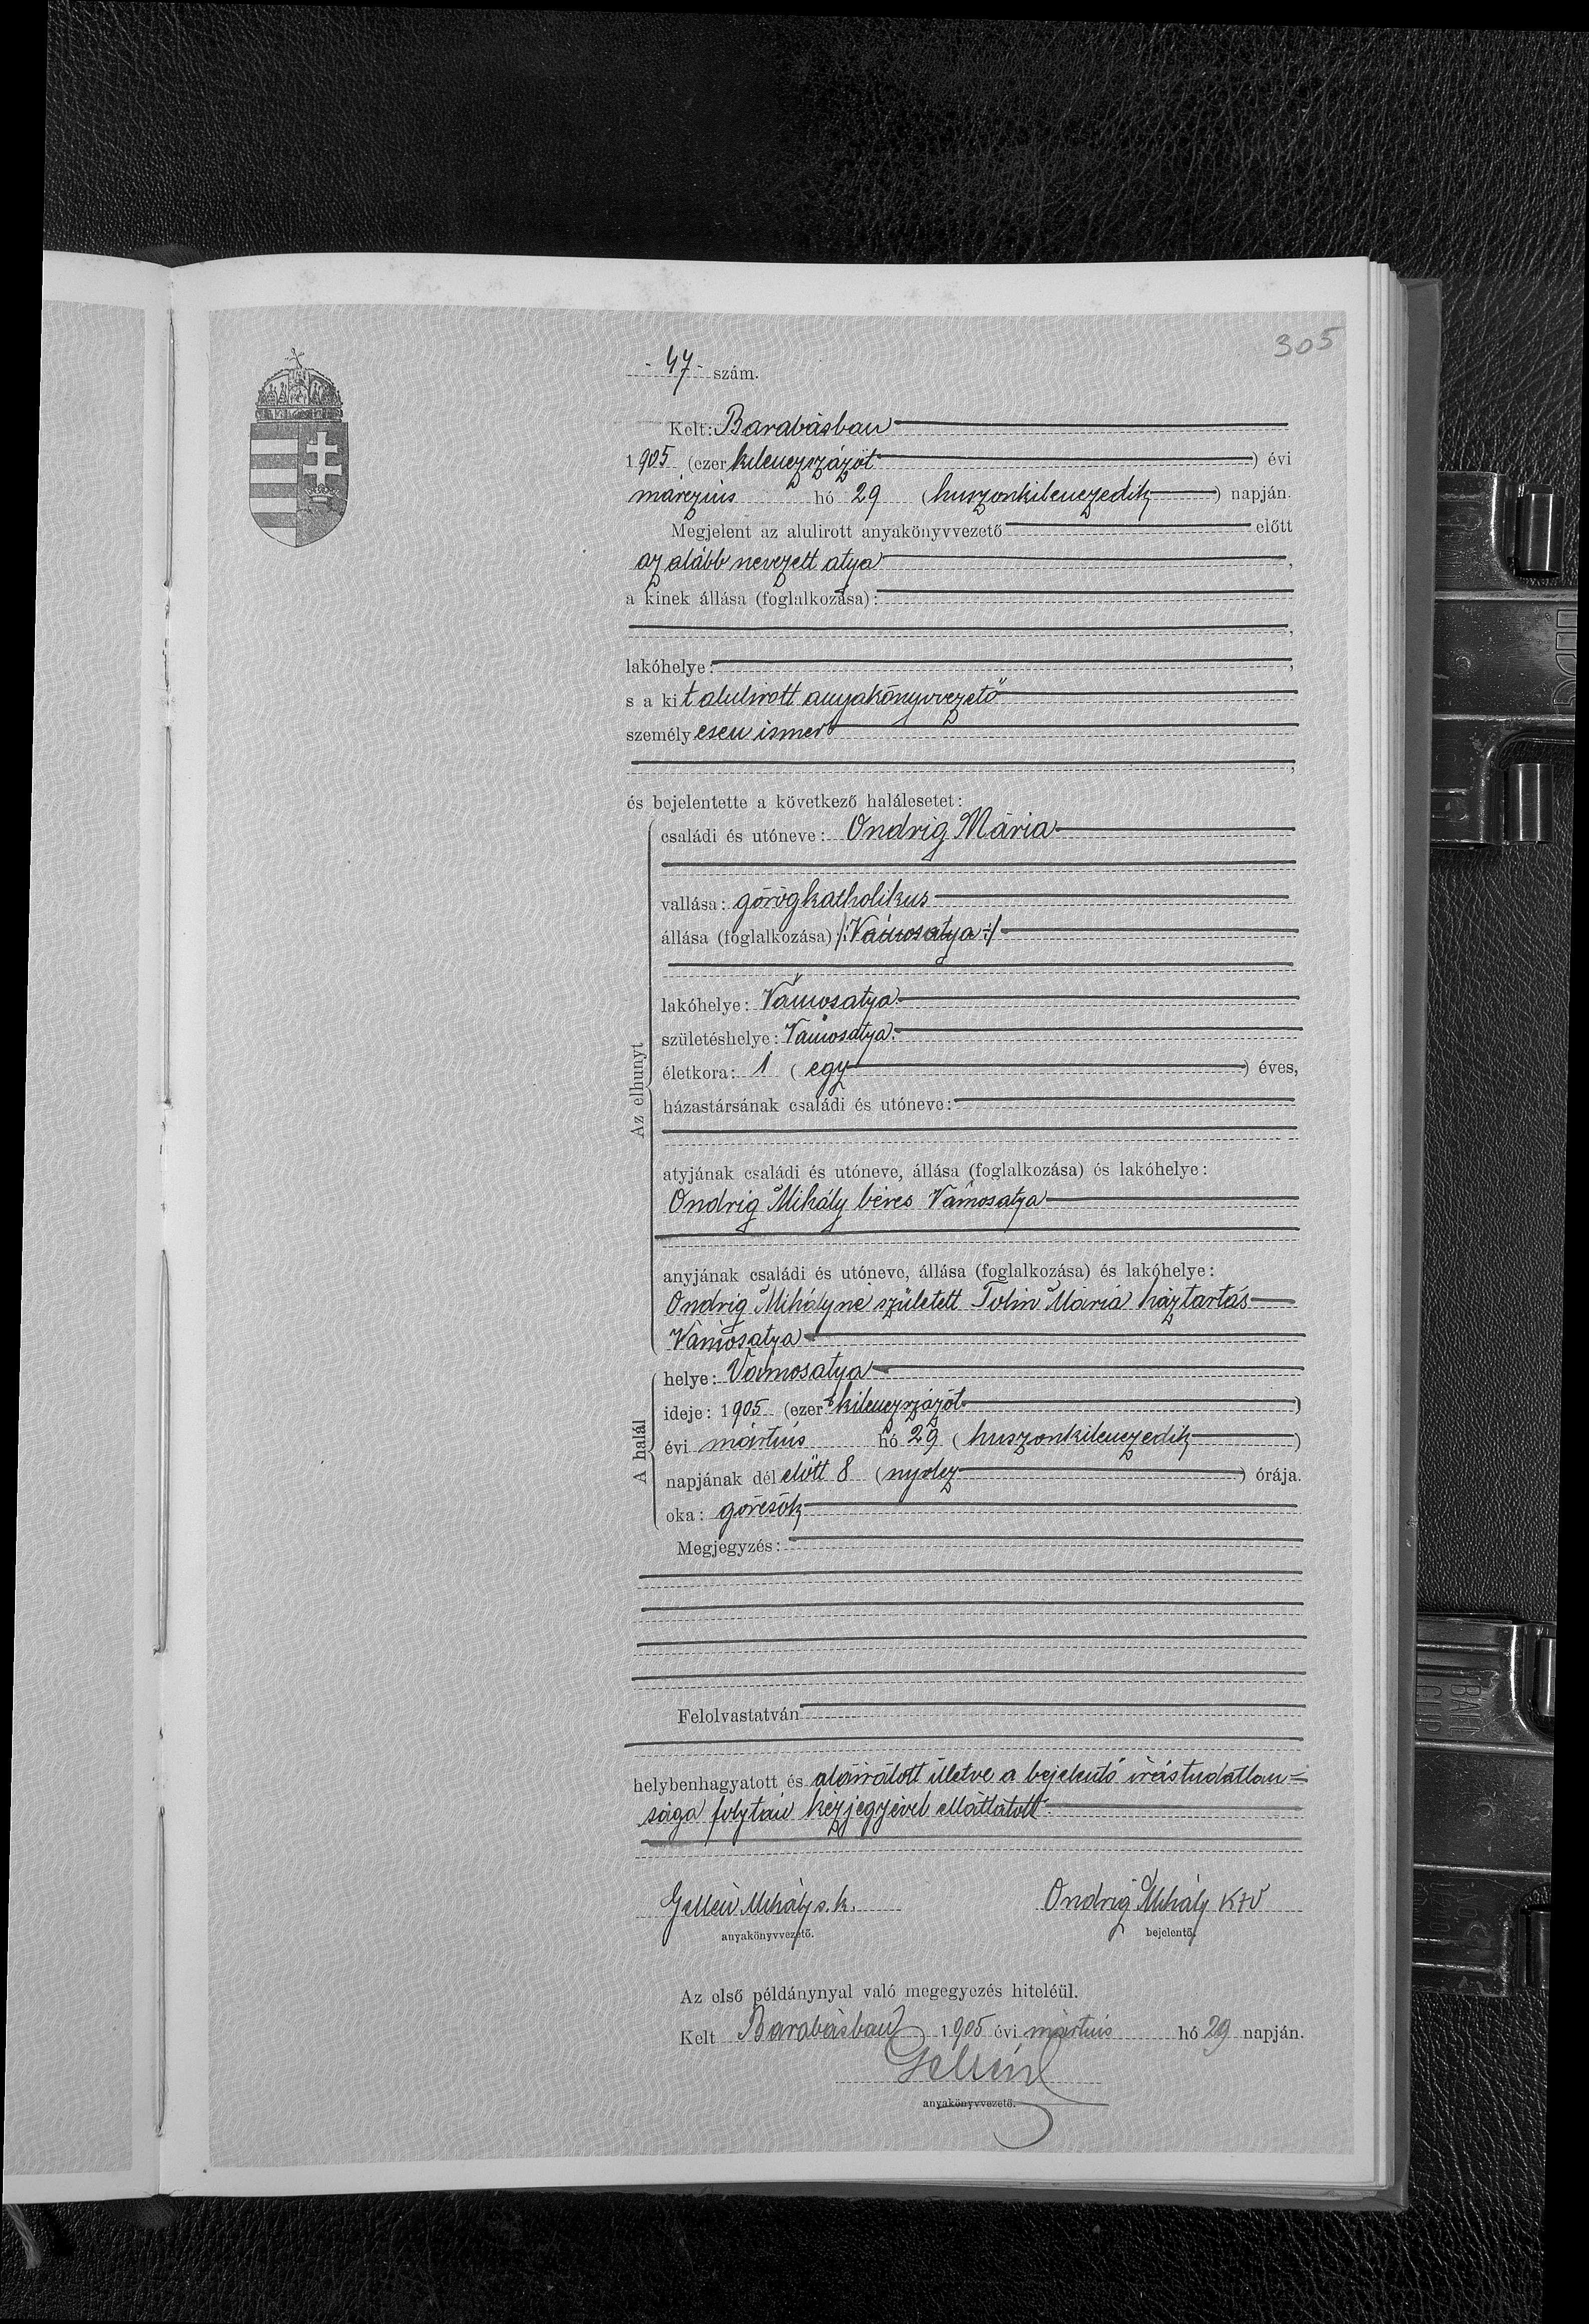 305
- 47 - szám.
Kelt: Barabásban
1905 (ezer kilenczszázöt) évi
márczius hó 29 (huszonkilenczedik) napján.
Megjelent az alulirott anyakönyvvezető előtt
az alább nevezett atya,
a kinek állása (foglalkozása):
lakóhelye:
s a kit alulirott anyakönyvvezető
személyesen ismer
és bejelentette a következő halálesetet:
Az elhunyt
családi és utóneve: Ondrig Mária
vallása: görögkatholikus
állása (foglalkozása): /: Vámosatya :/
lakóhelye: Vámosatya
születéshelye: Vámosatya
életkora: 1 (egy) éves,
házastársának családi és utóneve:
atyjának családi és utóneve, állása (foglalkozása) és lakóhelye:
Ondrig Mihály béres Vámosatya
anyjának családi és utóneve, állása (foglalkozása) és lakóhelye:
Ondrig Mihályné született Tolin Mária háztartás
Vámosatya
A halál
helye: Vámosatya
ideje: 1905 (ezer kilenczszázöt)
évi mártius hó 29 (huszonkilenczedik)
napjának dél előtt 8 (nyolcz) órája.
oka: görcsök
Megjegyzés:
Felolvastatván
helybenhagyatott és aláiratott illetve a bejelentő irástudatlan=
sága folytán kézjegyével elláttatott.
Gellén Mihály s. k. Ondrig Mihály K+V
anyakönyvvezető. bejelentő.
Az első példánynyal való megegyezés hiteléül.
Kelt Barabásban 1905 évi mártius hó 29 napján.
Gellén
anyakönyvvezető.